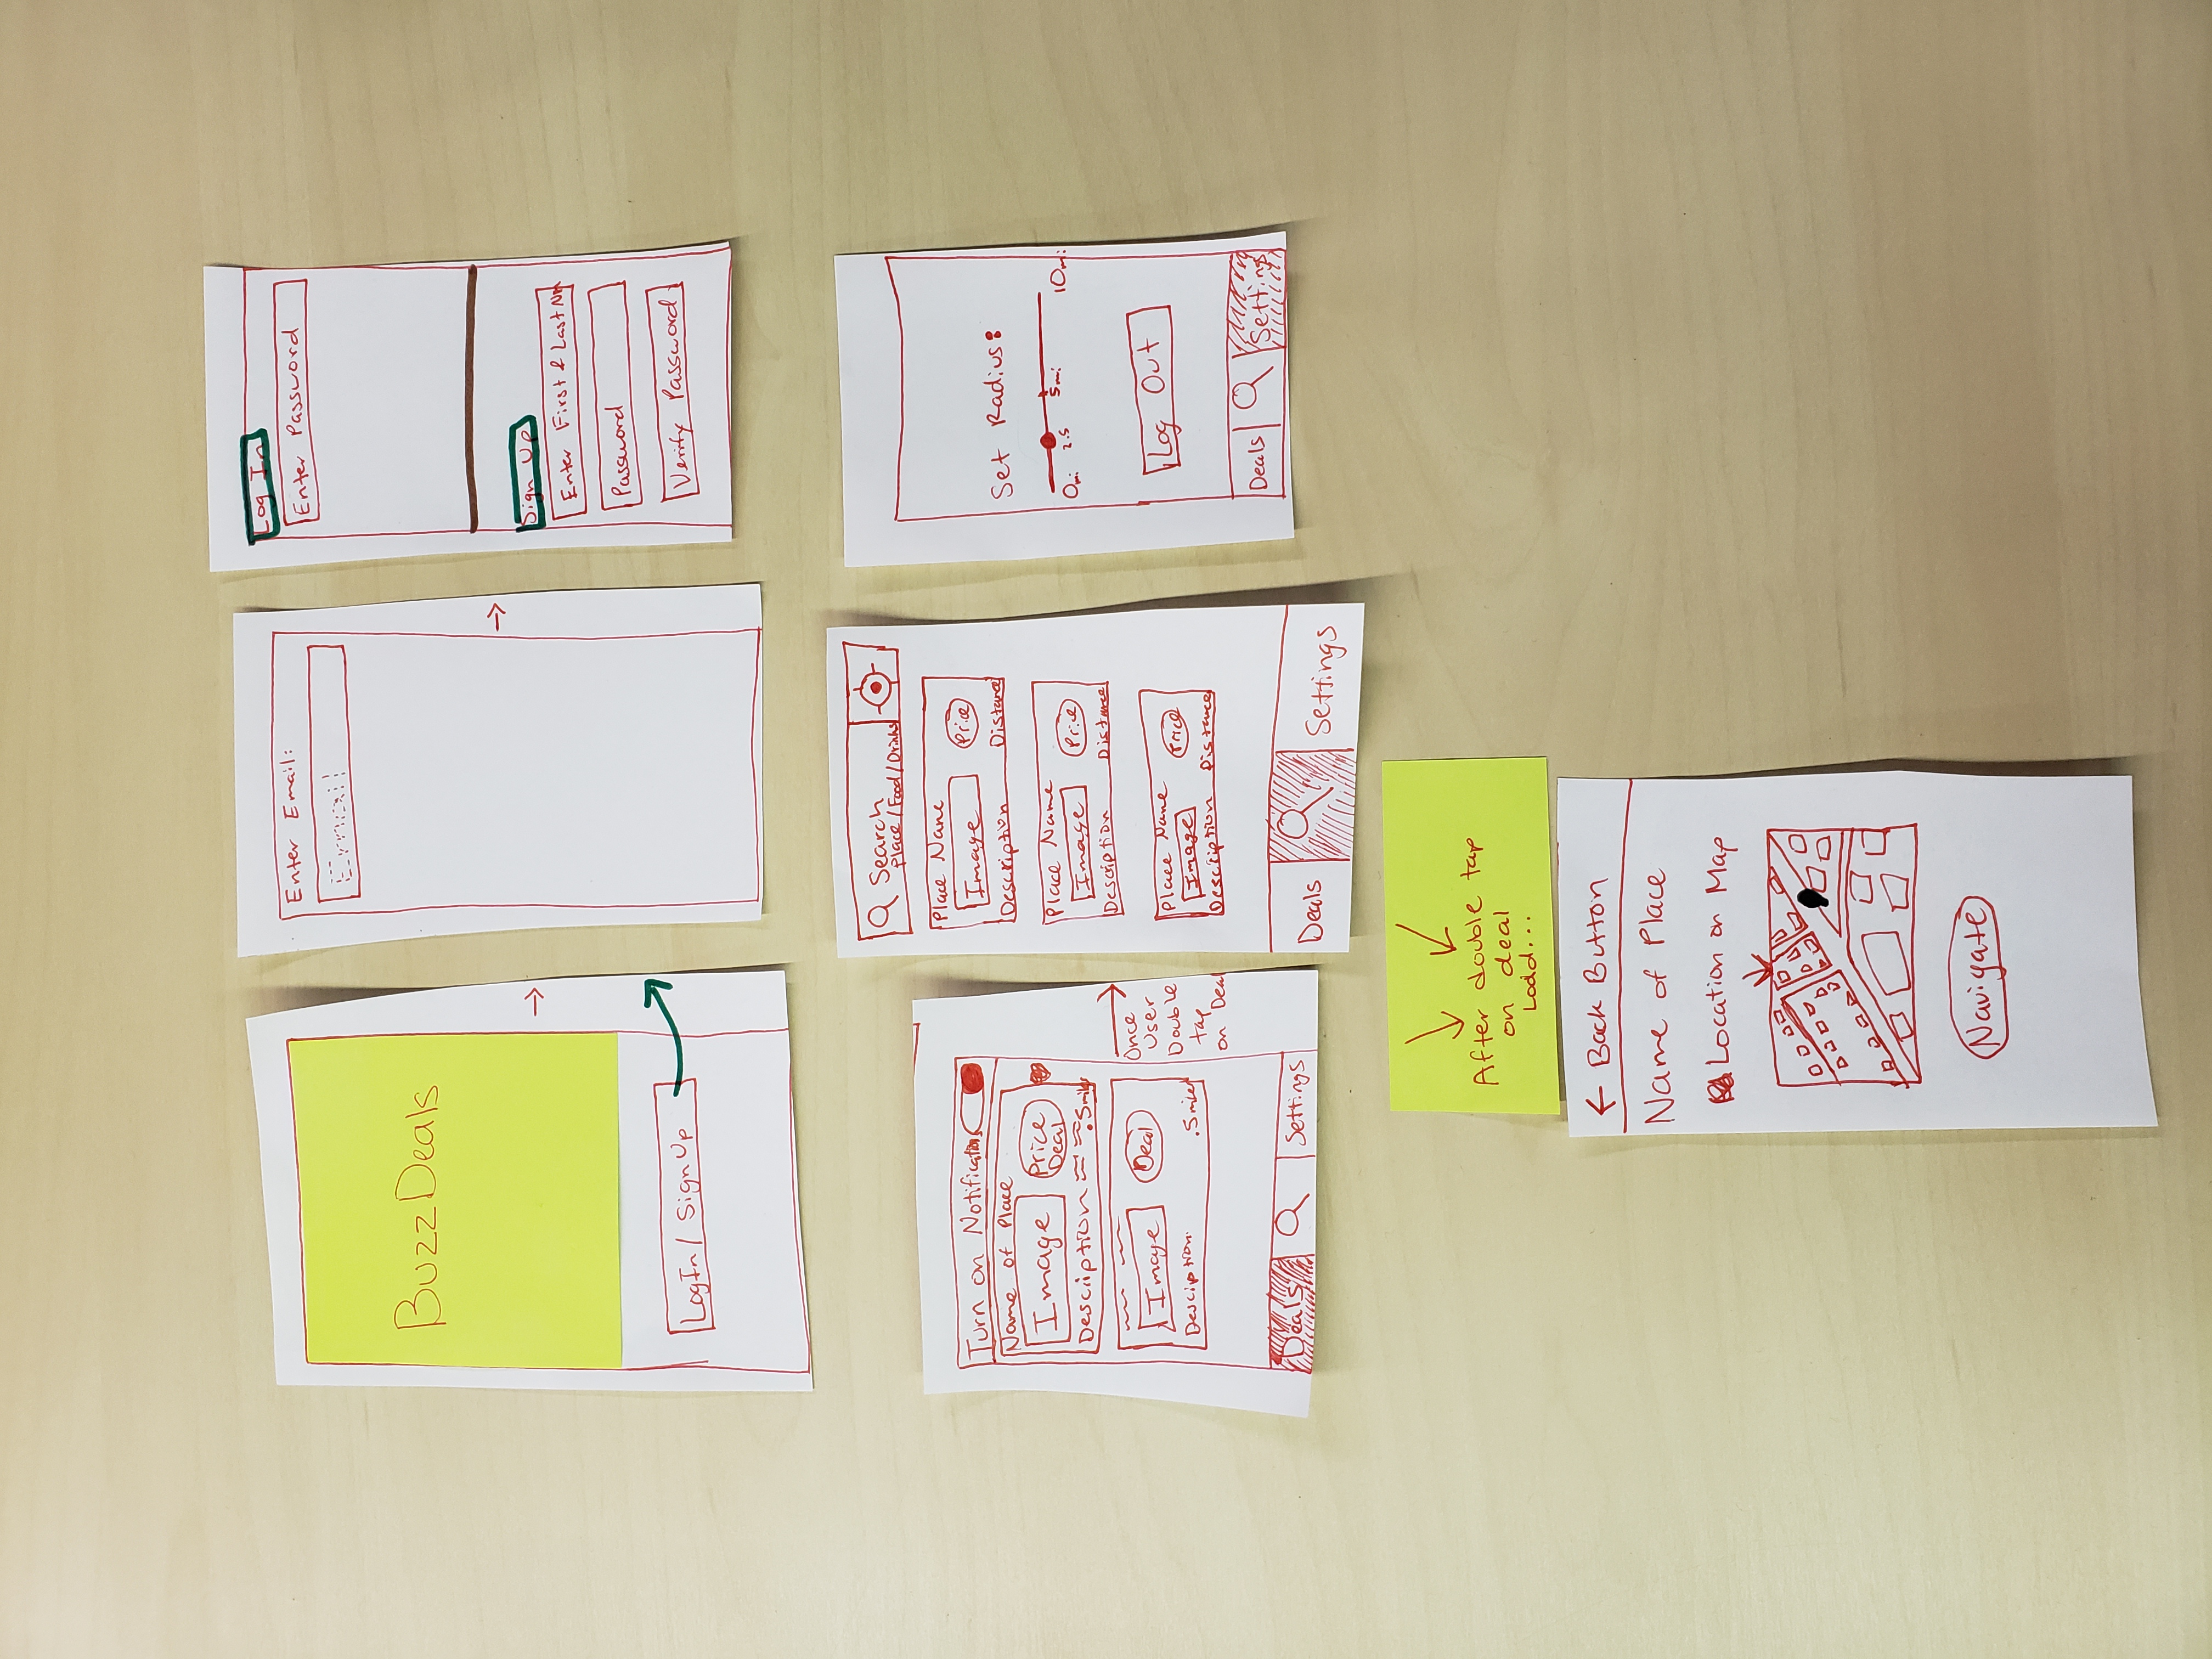 BuzzDeals
LogIn / SignUp
Enter Email:
Email
Log In
Enter Password
Sign Up
Enter First & Last Nm
Password
Verify Password
Turn on Notifications
Name of Place
Image
Price
Deal
Description
.5miles
Image
Deal
Description
.5miles
Deals
Settings
Once
User
Double
tap
on Deal
Search
Place / Food / Drinks
Place Name
Image
Price
Description
Distance
Place Name
Image
Price
Description
Distance
Place Name
Image
Price
Description
Distance
Deals
Settings
Set Radius:
0mi
2.5
5mi
10mi
Log Out
Deals
Settings
After double tap
on deal
Load...
← Back Button
Name of Place
Location on Map
Navigate